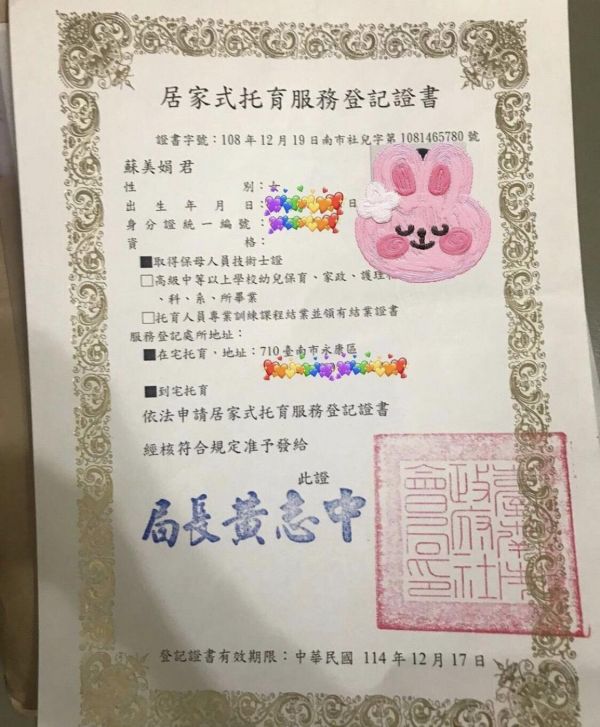 居家式托育服務登記證書
證書字號：108年12月19日南市社兒字第1081465780號
蘇美娟 君
性別：女
出生年月日：日
身分證統一編號：
資格：
■取得保母人員技術士證
□高級中等以上學校幼兒保育、家政、護理
、科、系、所畢業
□托育人員專業訓練課程結業並領有結業證書
服務登記處所地址：
■在宅托育，地址：710臺南市永康區
■到宅托育
依法申請居家式托育服務登記證書
經核符合規定准予發給
此證
局長黃志中
臺南市政府社會局印
登記證書有效期限：中華民國 114年12月17日